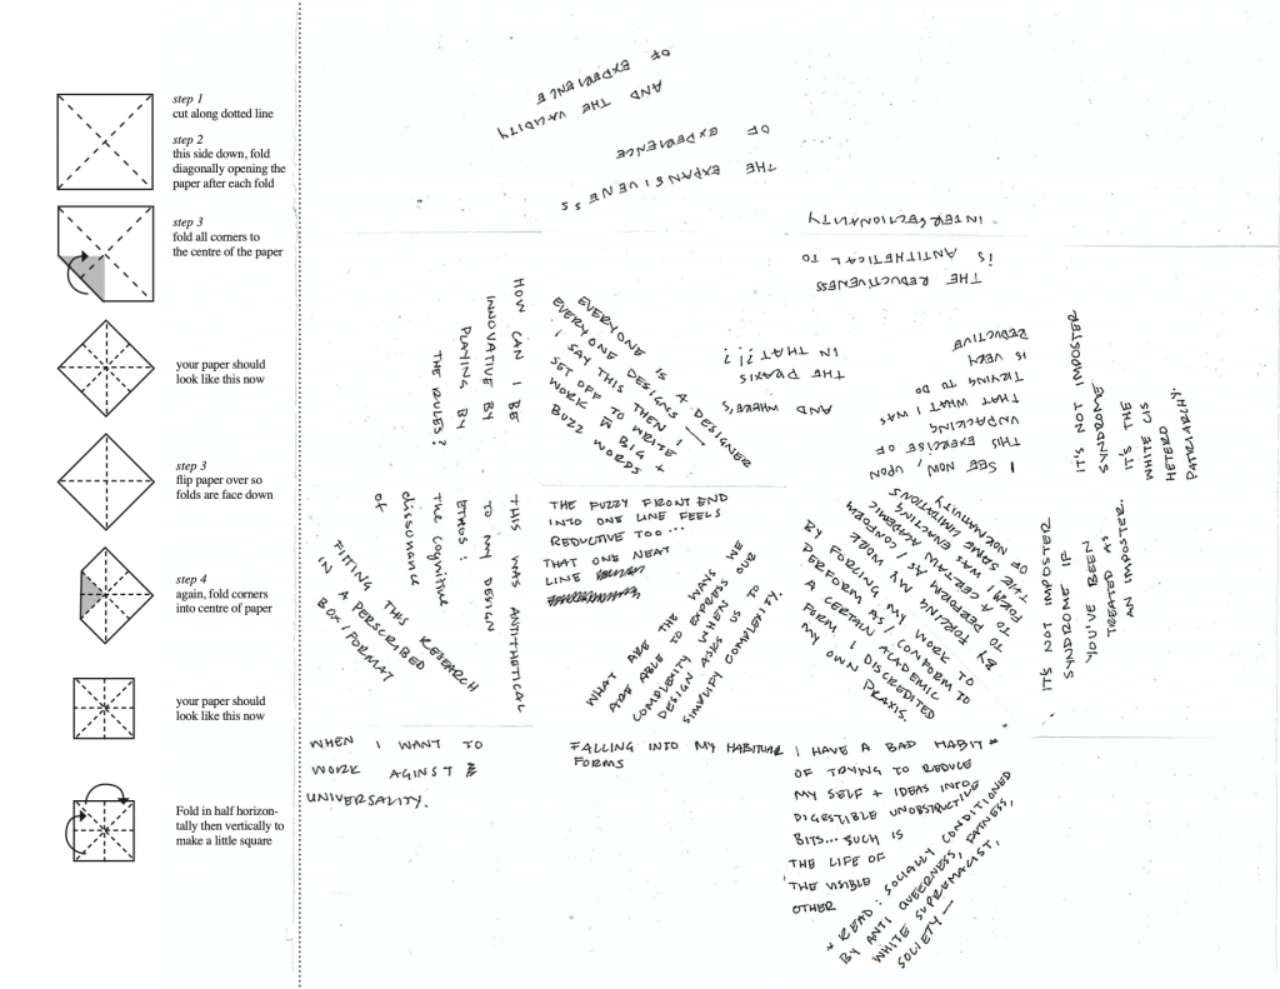 step 1
cut along dotted line
step 2
this side down, fold
diagonally opening the
paper after each fold
step 3
fold all corners to
the centre of the paper
your paper should
look like this now
step 3
flip paper over so
folds are face down
step 4
again, fold corners
into centre of paper
your paper should
look like this now
Fold in half horizon-
tally then vertically to
make a little square
THE EXPANSIVENESS
OF EXPERIENCE
AND THE VALIDITY
OF EXPERIENCE
THE REDUCTIVENESS
IS ANTITHETICAL TO
INTERSECTIONALITY
HOW CAN I BE
INNOVATIVE BY
PLAYING BY
THE RULES?
EVERYONE IS A DESIGNER
EVERYONE DESIGNS —
I SAY THIS THEN I
SET OFF TO WRITE
WORK BIG +
BUZZ WORDS
AND WHERE'S
THE PRAXIS
IN THAT ???
I SEE NOW, UPON
THIS EXERCISE OF
UNPACKING
THAT WHAT I WAS
TRYING TO DO
IS VERY
REDUCTIVE
IT'S NOT IMPOSTER
SYNDROME
IT'S THE
WHITE CIS
HETERO
PATRIARCHY.
THIS WAS ANTITHETICAL
TO MY DESIGN
ETHOS:
the cognitive
dissonance
of
FITTING THIS RESEARCH
IN A PERSCRIBED
BOX/FORMAT
THE FUZZY FRONT END
INTO ONE LINE FEELS
REDUCTIVE TOO...
THAT ONE NEAT
LINE
WHAT ARE THE WAYS WE
ARE ABLE TO EXPRESS OUR
COMPLEXITY WHEN
DESIGN ASKS US TO
SIMPLIFY COMPLEXITY.
BY FORCING MY WORK
TO PERFORM AS I CONFORM
TO A CERTAIN ACADEMIC
FORM I WAS ENACTING
THE SAME LIMITATIONS
OF NORMATIVITY
BY FORCING MY WORK TO
PERFORM AS I CONFORM TO
A CERTAIN ACADEMIC
FORM I DISCREDITED
MY OWN PRAXIS.
IT'S NOT IMPOSTER
SYNDROME IF
YOU'VE BEEN
TREATED AS
AN IMPOSTER.
WHEN I WANT TO
WORK AGINST
UNIVERSALITY.
FALLING INTO MY HABITUAL
FORMS
I HAVE A BAD HABIT *
OF TRYING TO REDUCE
MY SELF + IDEAS INTO
DIGESTIBLE UNOBSTRUCTIVE
BITS... SUCH IS
THE LIFE OF
THE VISIBLE
OTHER
* READ: SOCIALLY CONDITIONED
BY ANTI QUEERNESS, FATNESS,
WHITE SUPREMACIST,
SOCIETY —